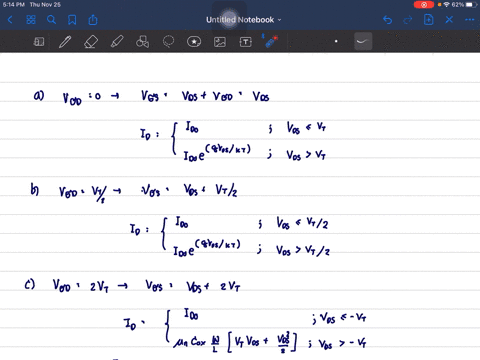 5:14 PM Thu Nov 25
62%
Untitled Notebook
a) V_GD = 0 → V_GS = V_DS + V_GD = V_DS
I_D : { I_D0 ; V_DS ≤ V_T
I_D0 e^(qV_DS/kT) ; V_DS > V_T
b) V_GD = V_T/2 → V_GS = V_DS + V_T/2
I_D : { I_D0 ; V_DS ≤ V_T/2
I_D0 e^(qV_DS/kT) ; V_DS > V_T/2
c) V_GD = 2V_T → V_GS = V_DS + 2V_T
I_D = { I_D0 ; V_DS ≤ -V_T
μn Cox W/L [V_T V_DS + V_DS²/2] ; V_DS > -V_T